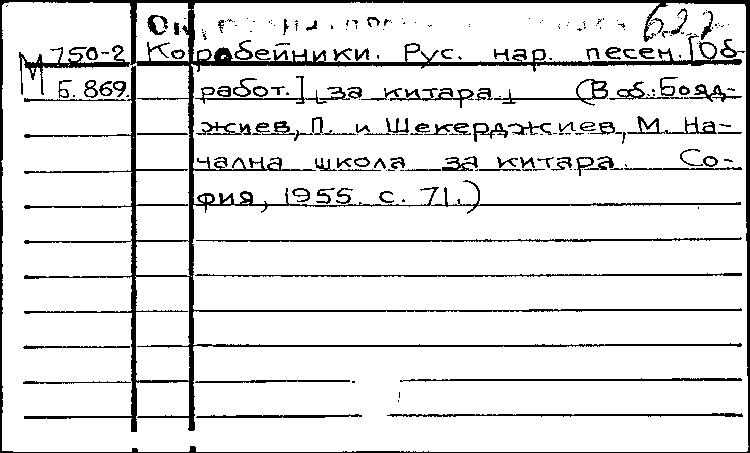 622
М 750-2 Коробейники. Рус. нар. песен. [Об-
Б. 869. работ.] за китара. (В сб.: Бояд-
жиев, П. и Шекерджиев, М. На-
чална школа за китара. Со-
фия, 1955. с. 71.)